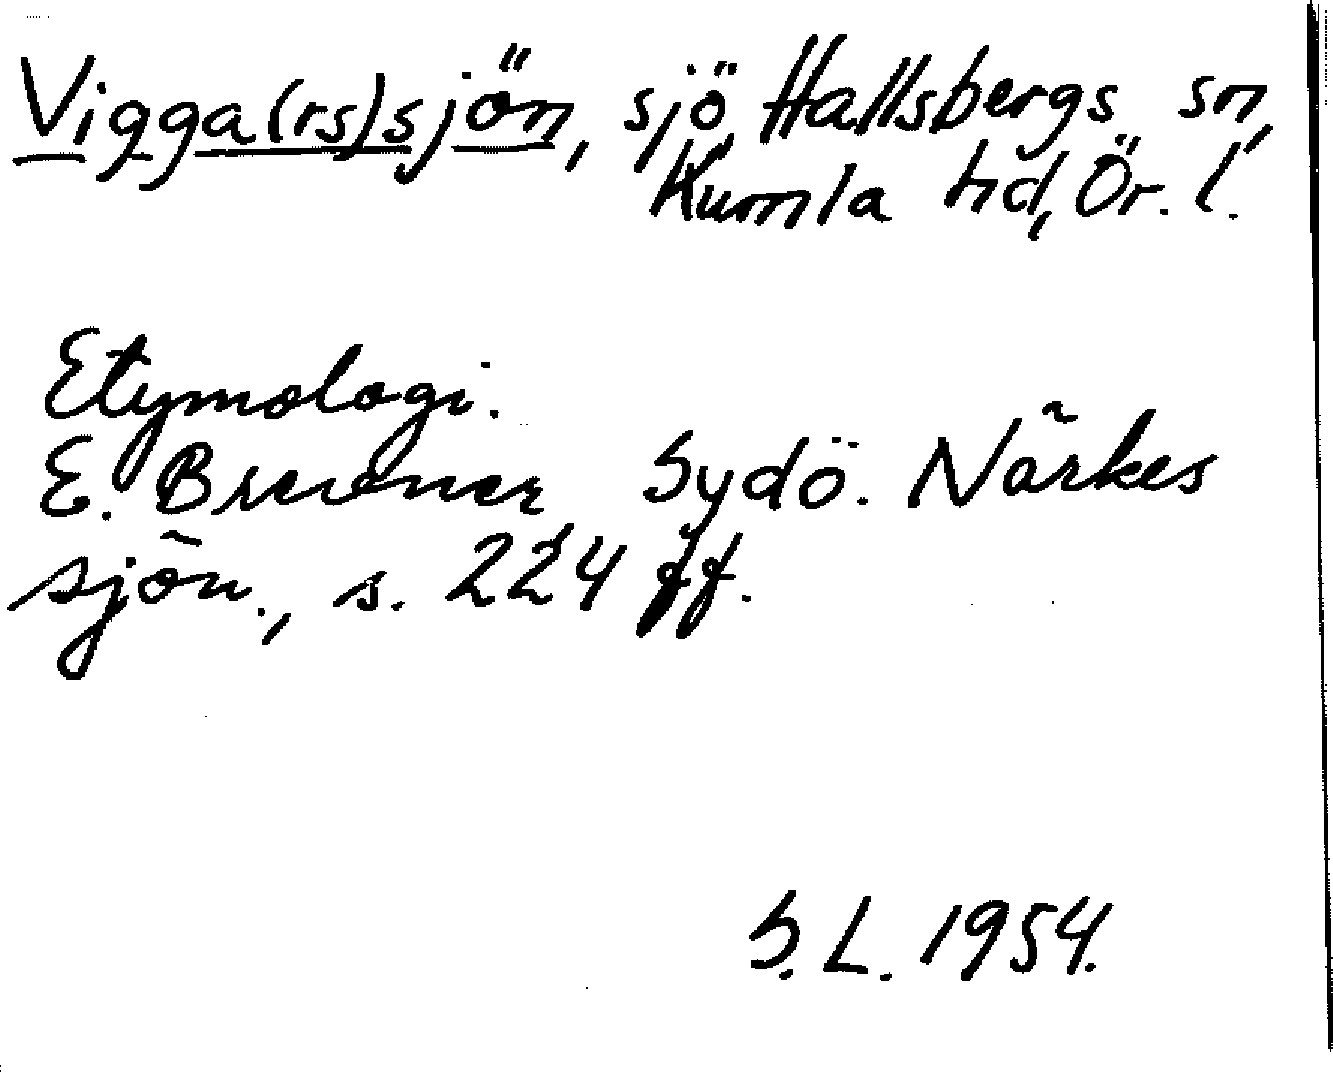 Vigga(rs)sjön, sjö, Hallsbergs sn,
Kumla hd, Ör. l.
Etymologi.
E. Brevner Sydö. Närkes
sjön., s. 224 ff.
S. L. 1954.